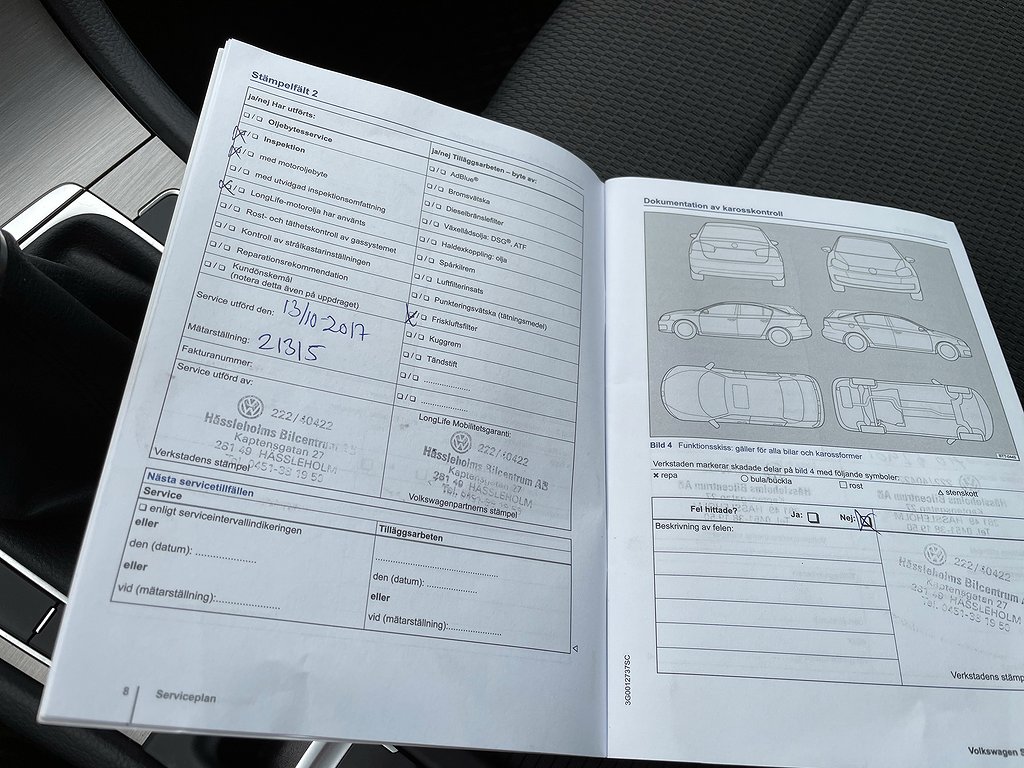 Stämpelfält 2
ja/nej Har utförts:
❏ / ❏ Oljebytesservice
☒ / ❏ Inspektion
☒ / ❏ med motoroljebyte
❏ / ❏ med utvidgad inspektionsomfattning
☒ / ❏ LongLife-motorolja har använts
❏ / ❏ Rost- och täthetskontroll av gassystemet
❏ / ❏ Kontroll av strålkastarinställningen
❏ / ❏ Reparationsrekommendation
❏ / ❏ Kundönskemål
(notera detta även på uppdraget)
Service utförd den: 13/10-2017
Mätarställning: 21315
Fakturanummer:
Service utförd av:
222/30422
Hässleholms Bilcentrum AB
Kaptensgatan 27
281 49 HÄSSLEHOLM
Tel. 0451-38 19 50
Verkstadens stämpel
ja/nej Tilläggsarbeten – byte av:
❏ / ❏ AdBlue®
❏ / ❏ Bromsvätska
❏ / ❏ Dieselbränslefilter
❏ / ❏ Växellådsolja: DSG® ATF
❏ / ❏ Haldexkoppling: olja
❏ / ❏ Spårkilrem
❏ / ❏ Luftfilterinsats
❏ / ❏ Punkteringsvätska (tätningsmedel)
☒ / ❏ Friskluftsfilter
❏ / ❏ Kuggrem
❏ / ❏ Tändstift
❏ / ❏ ..................
❏ / ❏ ..................
LongLife Mobilitetsgaranti:
222/30422
Hässleholms Bilcentrum AB
Kaptensgatan 27
281 49 HÄSSLEHOLM
Tel. 0451-38 19 50
Volkswagenpartnerns stämpel
Nästa servicetillfällen
Service
❏ enligt serviceintervallindikeringen
eller
den (datum): ..................
eller
vid (mätarställning):..................
Tilläggsarbeten
..................
den (datum): ..................
eller
vid (mätarställning):..................
8 Serviceplan
Dokumentation av karosskontroll
B71-0446
Bild 4 Funktionsskiss: gäller för alla bilar och karossformer
Verkstaden markerar skadade delar på bild 4 med följande symboler:
× repa ○ bula/buckla □ rost △ stenskott
Fel hittade? Ja: ❏ Nej: ☒
Beskrivning av felen:
222/30422
Hässleholms Bilcentrum
Kaptensgatan 27
281 49 HÄSSLEHOLM
Tel. 0451-38 19 50
Verkstadens stämp
3G0012737SC
Volkswagen S